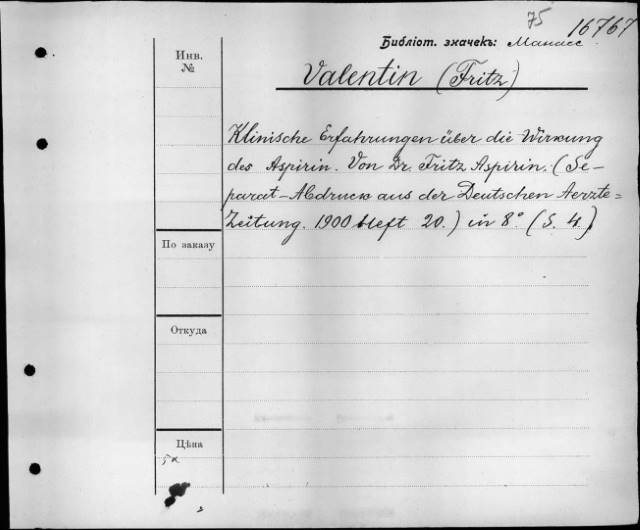 75
16767
Библіот. значекъ: Манасс
Инв.
№
Valentin (Fritz)
Klinische Erfahrungen über die Wirkung
des Aspirin. Von Dr. Fritz Aspirin. (Se-
parat-Abdruck aus der Deutschen Aerzte=
Zeitung. 1900 Heft 20.) in 8° (S. 4.)
По заказу
Откуда
Цѣна